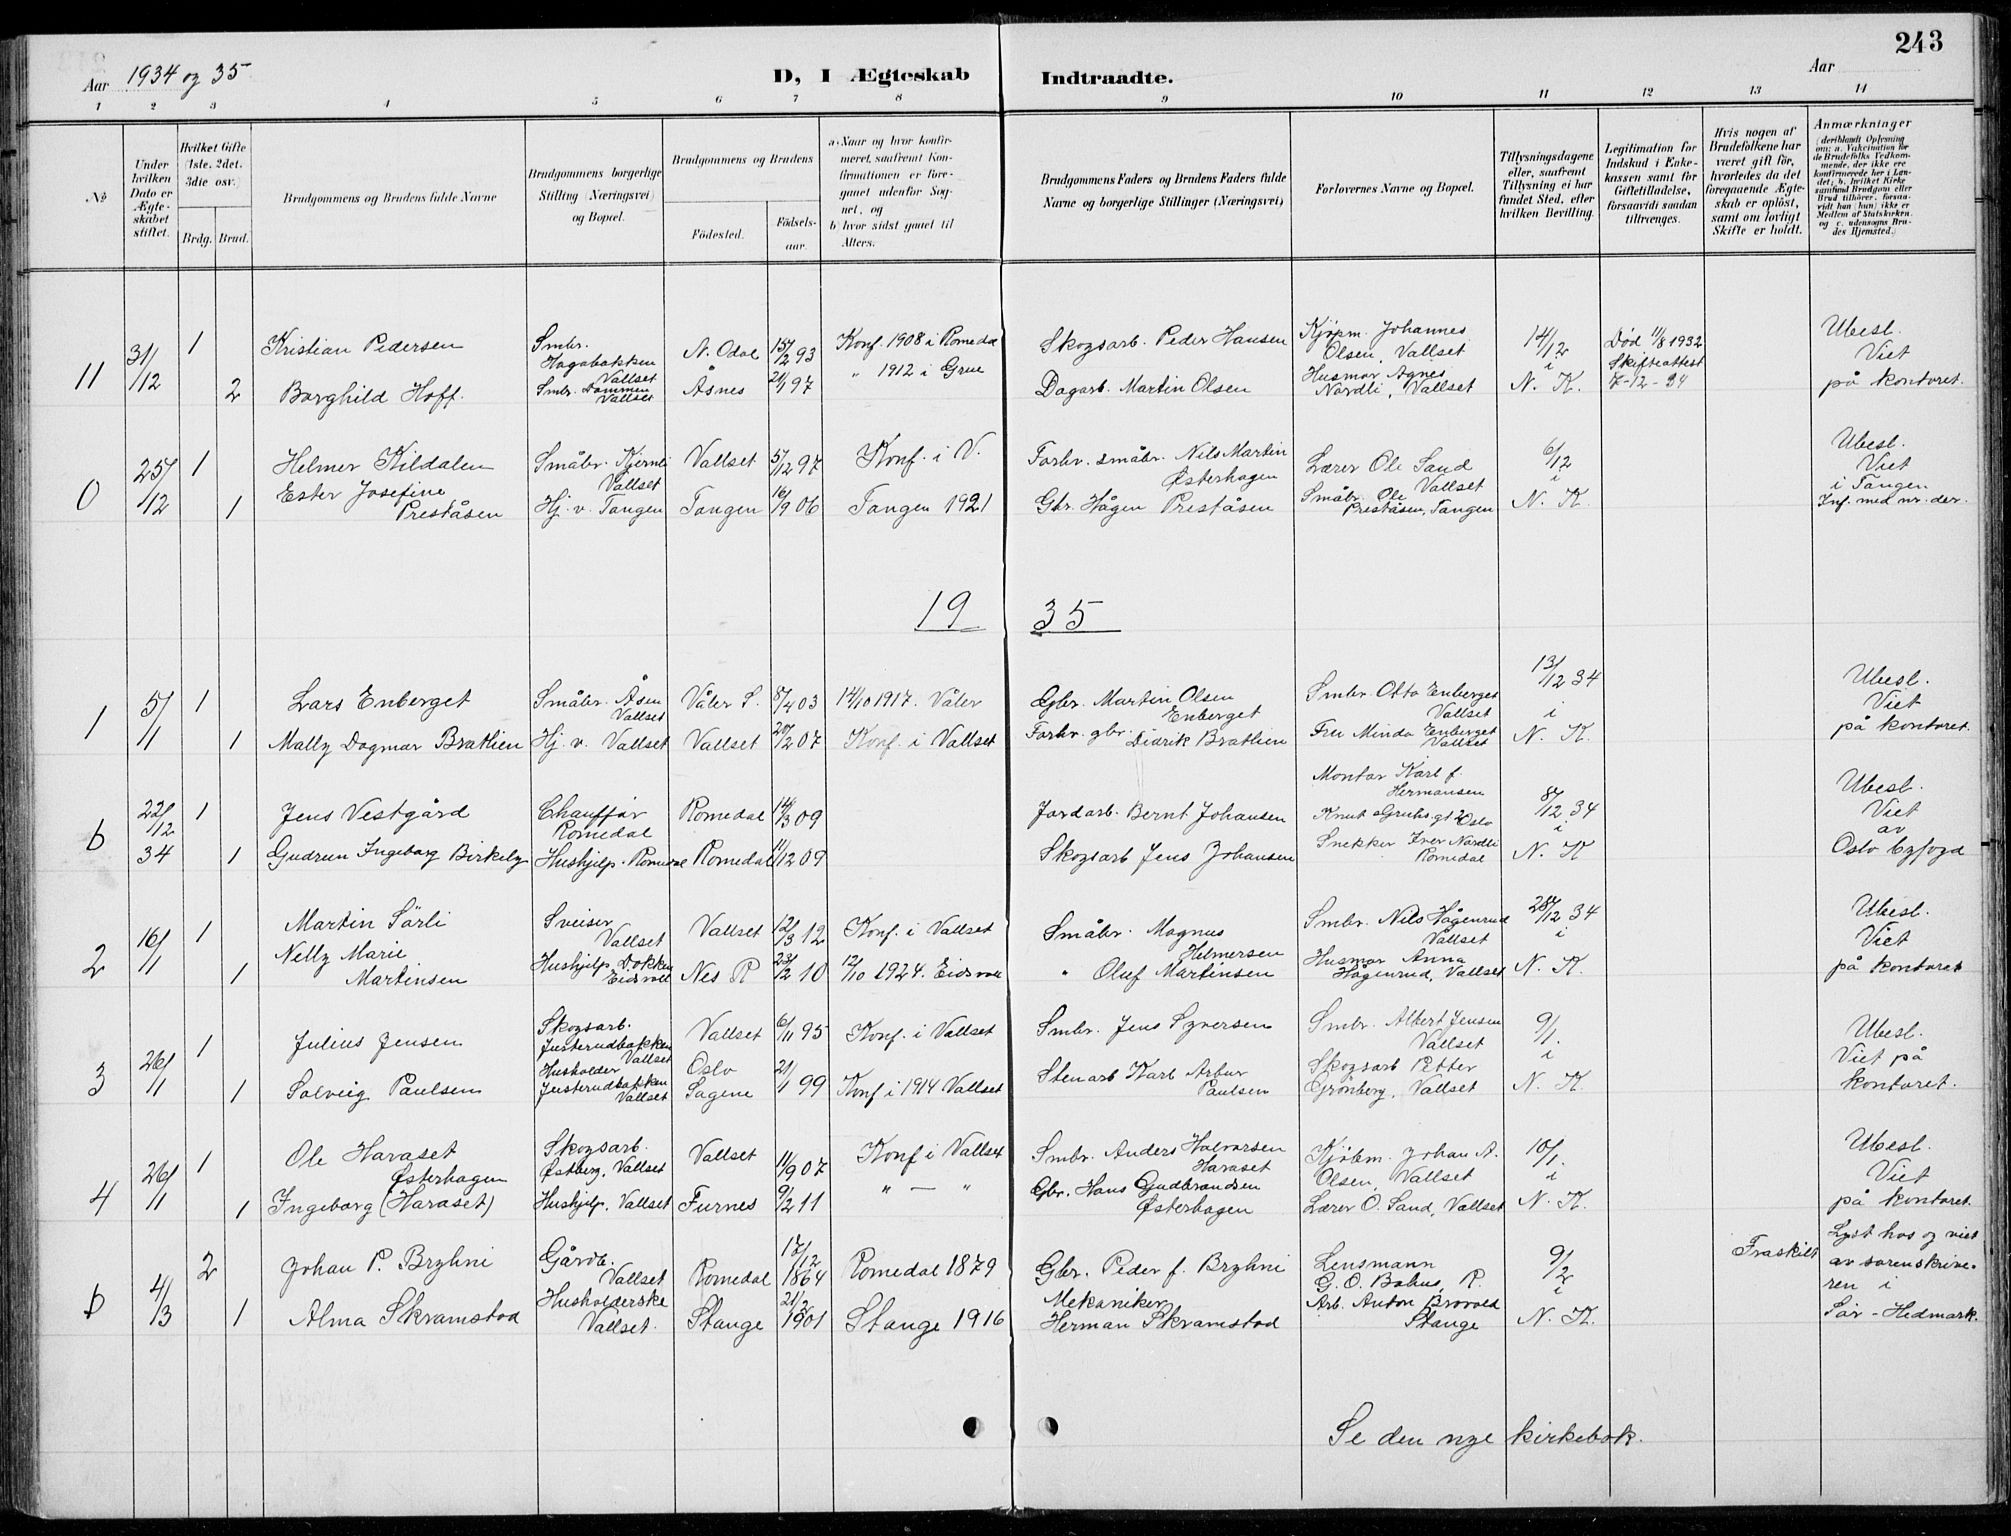 243
Aar 1934 og 35
D, I Ægteskab Indtraadte.
Aar
1 2 3 4 5 6 7 8 9 10 11 12 13 14
No
Under hvilken Dato er Ægteskabet stiftet.
Hvilket Gifte (1ste, 2det, 3die osv.)
Brdg. Brud.
Brudgommens og Brudens fulde Navne
Brudgommens borgerlige Stilling (Næringsvei) og Bopæl.
Brudgommens og Brudens
Fødested.
Fødselsaar.
a) Naar og hvor konfirmeret, saafremt Konfirmationen er foregaaet udenfor Sognet, og
b) hvor sidst gaaet til Alters.
Brudgommens Faders og Brudens Faders fulde Navne og borgerlige Stillinger (Næringsvei)
Forlovernes Navne og Bopæl.
Tillysningsdagene eller, saafremt Tillysning ei har fundet Sted, efter hvilken Bevilling.
Legitimation for Indskud i Enkekassen samt for Giftetilladelse, forsaavidt saadan tiltrænges.
Hvis nogen af Brudefolkene har været gift før, hvorledes da det foregaaende Ægteskab er opløst, samt om lovligt Skifte er holdt.
Anmærkninger
(deriblandt Oplysning om: a. Vakcination for de Brudefolks Vedkommende, der ikke ere konfirmerede her i Landet; b. hvilket Kirkesamfund Brudgom eller Brud tilhører, forsaavidt han (hun) ikke er Medlem af Statskirken, og c. udensogns Brudes Hjemsted.)
11 31/12 1 Kristian Pedersen Smbr. Hagabakken Vallset N. Odal 15/2 93 Konf. 1908 i Romedal Skogsarb. Peder Hansen Kjøpm. Johannes Olsen, Vallset 14/12 i N. K. Død 11/8 1932 Skifteattest 7-12-34 Ubesl. Viet på kontoret.
2 Borghild Hoff. Smbr. Dammen Vallset Åsnes 97 " 1912 i Grue Dagarb. Martin Olsen Husmor Agnes Nordli, Vallset
0 25/12 1 Helmer Kildalen Småbr. Kjernli Vallset Vallset 5/12 97 Konf. i V. Forhv. småbr. Nils Martin Østerhagen Lærer Ole Sand Vallset 6/12 i N. K. Ubesl. Viet i Tangen Inf. med nr. der.
1 Ester Josefine Preståsen Hj. v. Tangen Tangen 16/9 06 Tangen 1921 Gbr. Hågen Preståsen Småbr. Ole Preståsen, Tangen
19 35
1 5/1 1 Lars Enberget Småbr. Åsen Vallset Våler S. 8/4 03 14/10 1917. Våler Gbr. Martin Olsen Enberget Smbr. Otto Enberget Vallset 13/12 34 i N. K. Ubesl. Viet på kontoret.
1 Mally Dagmar Brathien Hj. v. Vallset Vallset 20/2 07 Konf. i Vallset Forhv. gbr. Didrik Brathien Fru Minda Enberget Vallset
b 22/12 34 1 Jens Vestgård Chauffør Romedal Romedal 14/3 09 Jordarb. Bernt Johansen Montør Karl f. Hermansen Knut Oslo 8/12 34 i N. K. Ubesl. Viet av Oslo byfogd
1 Gudrun Ingeborg Birkely Hushjelp. Romedal Romedal 11/12 09 Skogsarb Jens Johansen Snekker Iver Nordli Romedal
2 16/1 1 Martin Sørli Sveiser Vallset Vallset 12/3 12 Konf. i Vallset Småbr. Magnus Helmersen Smbr. Nils Hågenrud Vallset 28/12 34 i N. K. Ubesl. Viet på kontoret
1 Nelly Marie Martinsen Hushjelp Dokken Eidsvoll Nes R 23/12 10 12/10 1924. Eidsvoll " Oluf Martinsen Husmor Anna Hågenrud, Vallset
3 26/1 1 Julius Jensen Skogsarb. Justerudbakken Vallset Vallset 6/11 95 Konf. i Vallset Smbr. Jens Syversen Smbr. Albert Jensen Vallset 9/1. i N. K. Ubesl. Viet på kontoret.
1 Solveig Paulsen Husholder Justerudbakken Vallset Oslo Sagene 21/1 99 Konf i 1914 Vallset Stenarb Karl Artur Paulsen Skogsarb Petter Grønberg, Vallset
4 26/1 1 Ole Haraset Skogsarb. Østberg, Vallset Vallset 11/9 07 Konf i Vallset Smbr. Anders Halvorsen Haraset Kjøbm. Johan A. Olsen, Vallset 10/1. i N. K. Ubesl. Viet på kontoret.
1 Østerhagen Ingeborg (Haraset) Hushjelp, Vallset Furnes 9/2 11 " — " Gbr. Hans Gudbrandsen Østerhagen Lærer O. Sand, Vallset
b 4/3 2 Johan P. Bryhni Gårdb. Vallset Romedal 17/12 1864 Romedal 1879 Gbr. Peder f. Bryhni Lensmann G. O. Bahus, R. 9/2 i N. K. Fraskilt Lyst hos og viet av sorenskriveren i Sør-Hedmark.
1 Alma Skramstad Husholderske Vallset. Stange 21/2 1901 Stange 1916 Mekaniker Herman Skramstad Arb. Anton Brovold Stange
Se den nye kirkebok.